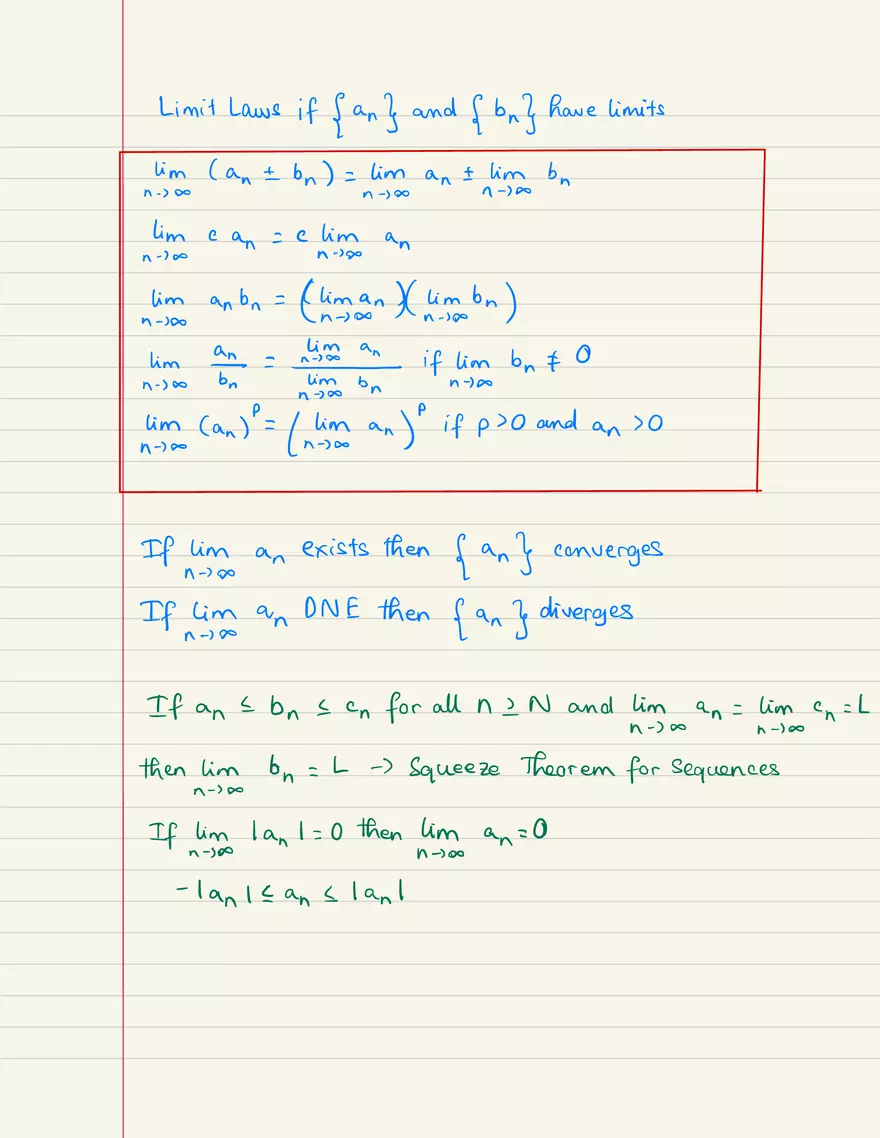 Limit Laws if {aₙ} and {bₙ} have limits
lim n→∞ (aₙ ± bₙ) = lim n→∞ aₙ ± lim n→∞ bₙ
lim n→∞ c aₙ = c lim n→∞ aₙ
lim n→∞ aₙ bₙ = (lim n→∞ aₙ)(lim n→∞ bₙ)
lim n→∞ aₙ/bₙ = lim n→∞ aₙ / lim n→∞ bₙ if lim n→∞ bₙ ≠ 0
lim n→∞ (aₙ)ᵖ = (lim n→∞ aₙ)ᵖ if p>0 and aₙ >0
If lim n→∞ aₙ exists then {aₙ} converges
If lim n→∞ aₙ DNE then {aₙ} diverges
If aₙ ≤ bₙ ≤ cₙ for all n ≥ N and lim n→∞ aₙ = lim n→∞ cₙ = L
then lim n→∞ bₙ = L → Squeeze Theorem for Sequences
If lim n→∞ |aₙ| = 0 then lim n→∞ aₙ = 0
-|aₙ| ≤ aₙ ≤ |aₙ|